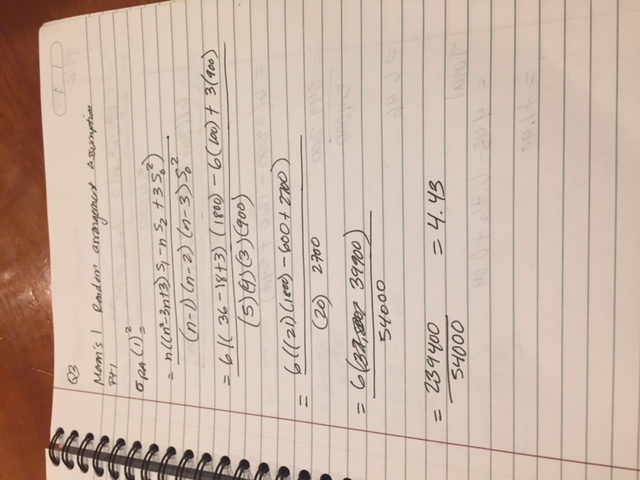 Q3
Moran's I Random arrangement assumption
Pt 1
σRA (I)² =
= n((n²-3n+3) S₁ - n S₂ + 3 S₀²)
(n-1) (n-2) (n-3) S₀²
= 6(( 36-18+3) (1800) - 6(100) + 3(900)
(5)(4)(3)(900)
= 6((21)(1800) - 600 + 2700)
(20) 2700
= 6( 39900)
54000
= 239400 = 4.43
54000